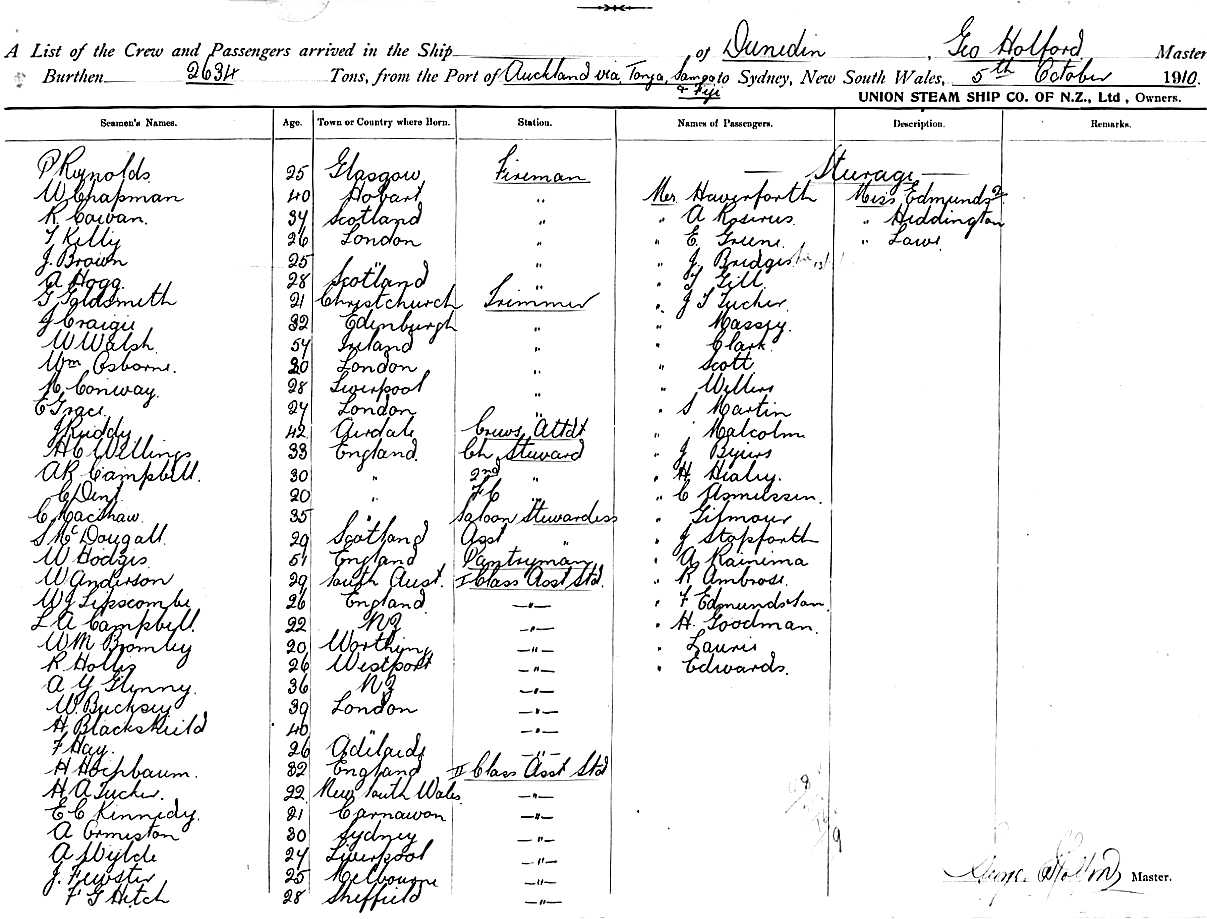 A List of the Crew and Passengers arrived in the Ship of Dunedin, Geo Holford Master
Burthen 2634 Tons, from the Port of Auckland via Tonga, Samoa & Fiji to Sydney, New South Wales, 5th October 1910.
UNION STEAM SHIP CO. OF N.Z., Ltd, Owners.
Seamen's Names. Age. Town or Country where Born. Station. Names of Passengers. Description. Remarks.
Sturage
P Reynolds 25 Glasgow Fireman
W Chapman 40 Hobart " Mr Haverforth Miss Edmunds 2
R Cowan 34 Scotland " " A Rosirus " Heddington
T Kelly 26 London " " E Greene " Lowe
J. Brown 25 " " " J Bridges
A Hogg 28 Scotland " " T Gill
G Goldsmith 21 Christchurch Trimmer " J T Tucher
J Craigie 32 Edenburgh " " Massey.
W Walsh 54 Ireland " " Clark
Wm Osborne. 30 London " " Scott
M Conway. 28 Liverpool " " Willers
E Grace 24 London " " S Martin
J Ruddy 42 Airdale Crews Attdt " Malcolm
H C Willings 33 England Ch Steward " J Byers
A R Campbell. 30 " 2nd " " H Healey.
C Dent 20 " F C " " C Asmussen.
C MacShaw. 35 " Saloon Stewardess " Gilmour
S McDougall 29 Scotland Asst " " J Stopforth
W Hodges 51 England Pantryman " A Rainima
W Anderson 29 South Aust. I Class Asst Std. " R Ambrose
W J Lipscombe 26 England —"— " F Edmundston
L A Campbell. 22 NZ —"— " H. Goodman.
W M Bromley 20 Worthing —"— " Laurie
R Hollis 26 Westport —"— " Edwards.
A Y Glenny. 36 NZ —"—
W. Bucksey 39 London —"—
H Blackshield 40 " —"—
F Hay. 26 Adelaide —"—
H Hochbaum. 32 England II Class Asst Std
H A Tucker. 22 New South Wales —"—
E C Kennedy. 21 Carnavon —"—
A Ormiston 30 Sydney —"—
A Wylde 24 Liverpool —"—
J. Fewster 25 Melbourne —"—
F G Hitch 28 Sheffield —"—
George Holford Master.